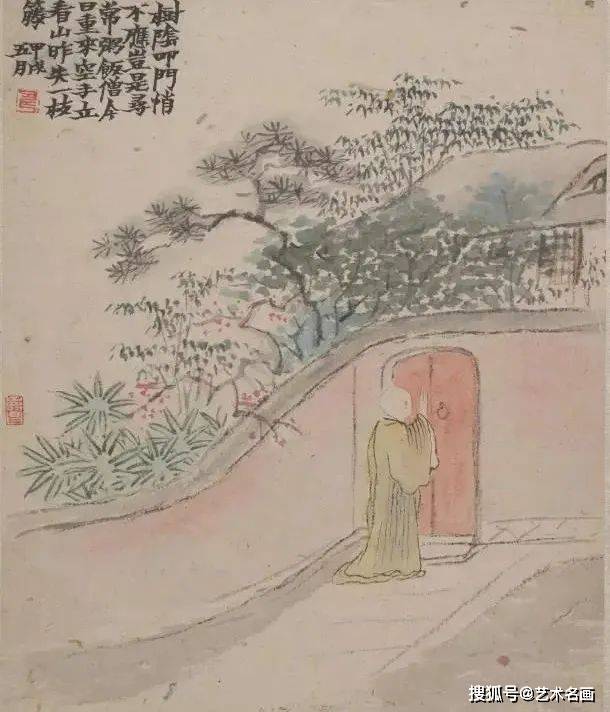 樹陰叩門悄
不應豈是尋
常粥飯僧今
日重來空手立
看山昨失一枝
籐 甲戌
五月
搜狐号@艺术名画